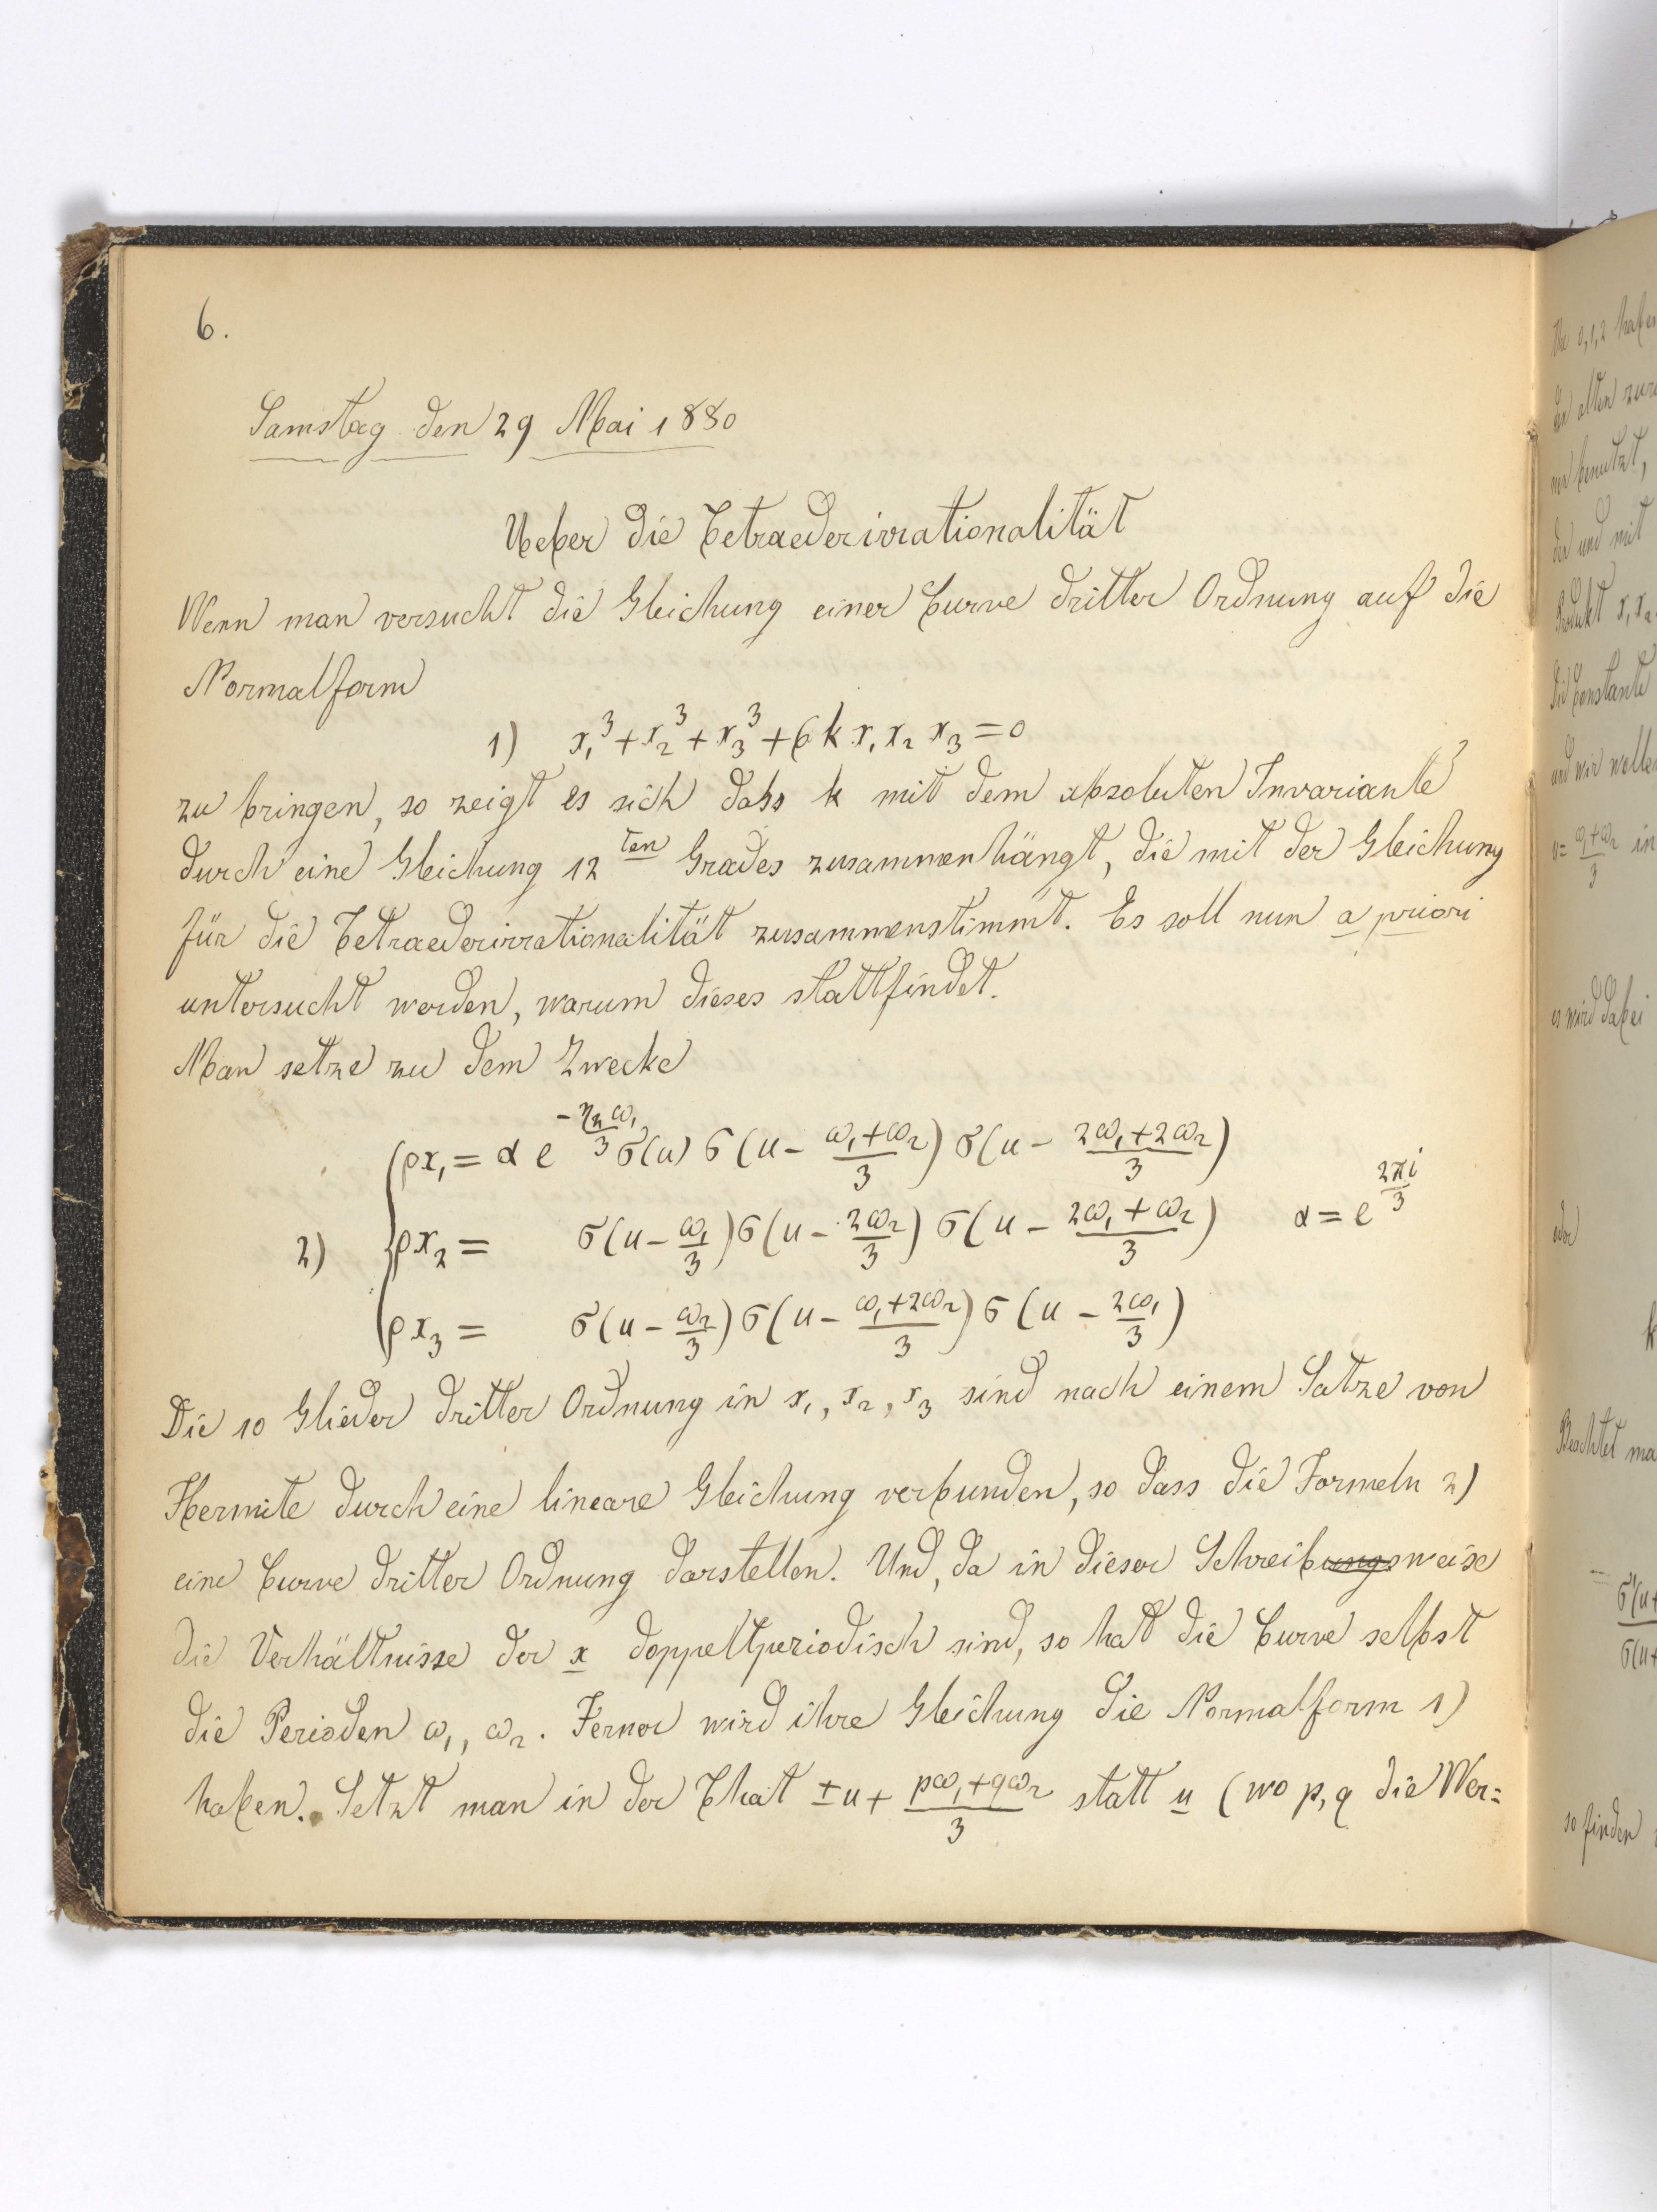 6.
Samstag den 29 Mai 1880
Ueber die Tetraederirrationalität
Wenn man versucht die Gleichung einer Curve dritter Ordnung auf die
Normalform
1) x₁³ + x₂³ + x₃³ + 6 k x₁ x₂ x₃ = 0
zu bringen, so zeigt es sich dass k mit dem absoluten Invariante
durch eine Gleichung 12ten Grades zusammenhängt, die mit der Gleichung
für die Tetraederirrationalität zusammenstimmt. Es soll nun a priori
untersucht werden, warum dieses stattfindet.
Man setze zu dem Zwecke
ρx₁ = α e^(-η₂ω₁/3) σ(u) σ(u - (ω₁+ω₂)/3) σ(u - (2ω₁+2ω₂)/3)
2) ρx₂ = σ(u - ω₁/3) σ(u - 2ω₂/3) σ(u - (2ω₁+ω₂)/3) α = e^(2πi/3)
ρx₃ = σ(u - ω₂/3) σ(u - (ω₁+2ω₂)/3) σ(u - 2ω₁/3)
Die 10 Glieder dritter Ordnung in x₁, x₂, x₃ sind nach einem Satze von
Hermite durch eine lineare Gleichung verbunden, so dass die Formeln 2)
eine Curve dritter Ordnung darstellen. Und, da in dieser Schreibungsweise
die Verhältnisse der x doppeltperiodisch sind, so hat die Curve selbst
die Perioden ω₁, ω₂. Ferner wird ihre Gleichung die Normalform 1)
haben. Setzt man in der That ±u + (pω₁+qω₂)/3 statt u (wo p, q die Wer=